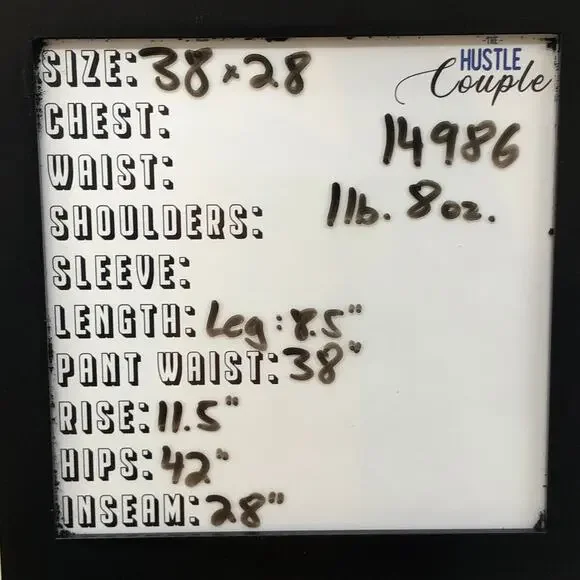 -THE-
HUSTLE
Couple
SIZE: 38 x 28
CHEST:
14986
WAIST:
SHOULDERS:
1 lb. 8 oz.
SLEEVE:
LENGTH: Leg: 8.5"
PANT WAIST: 38"
RISE: 11.5"
HIPS: 42"
INSEAM: 28"